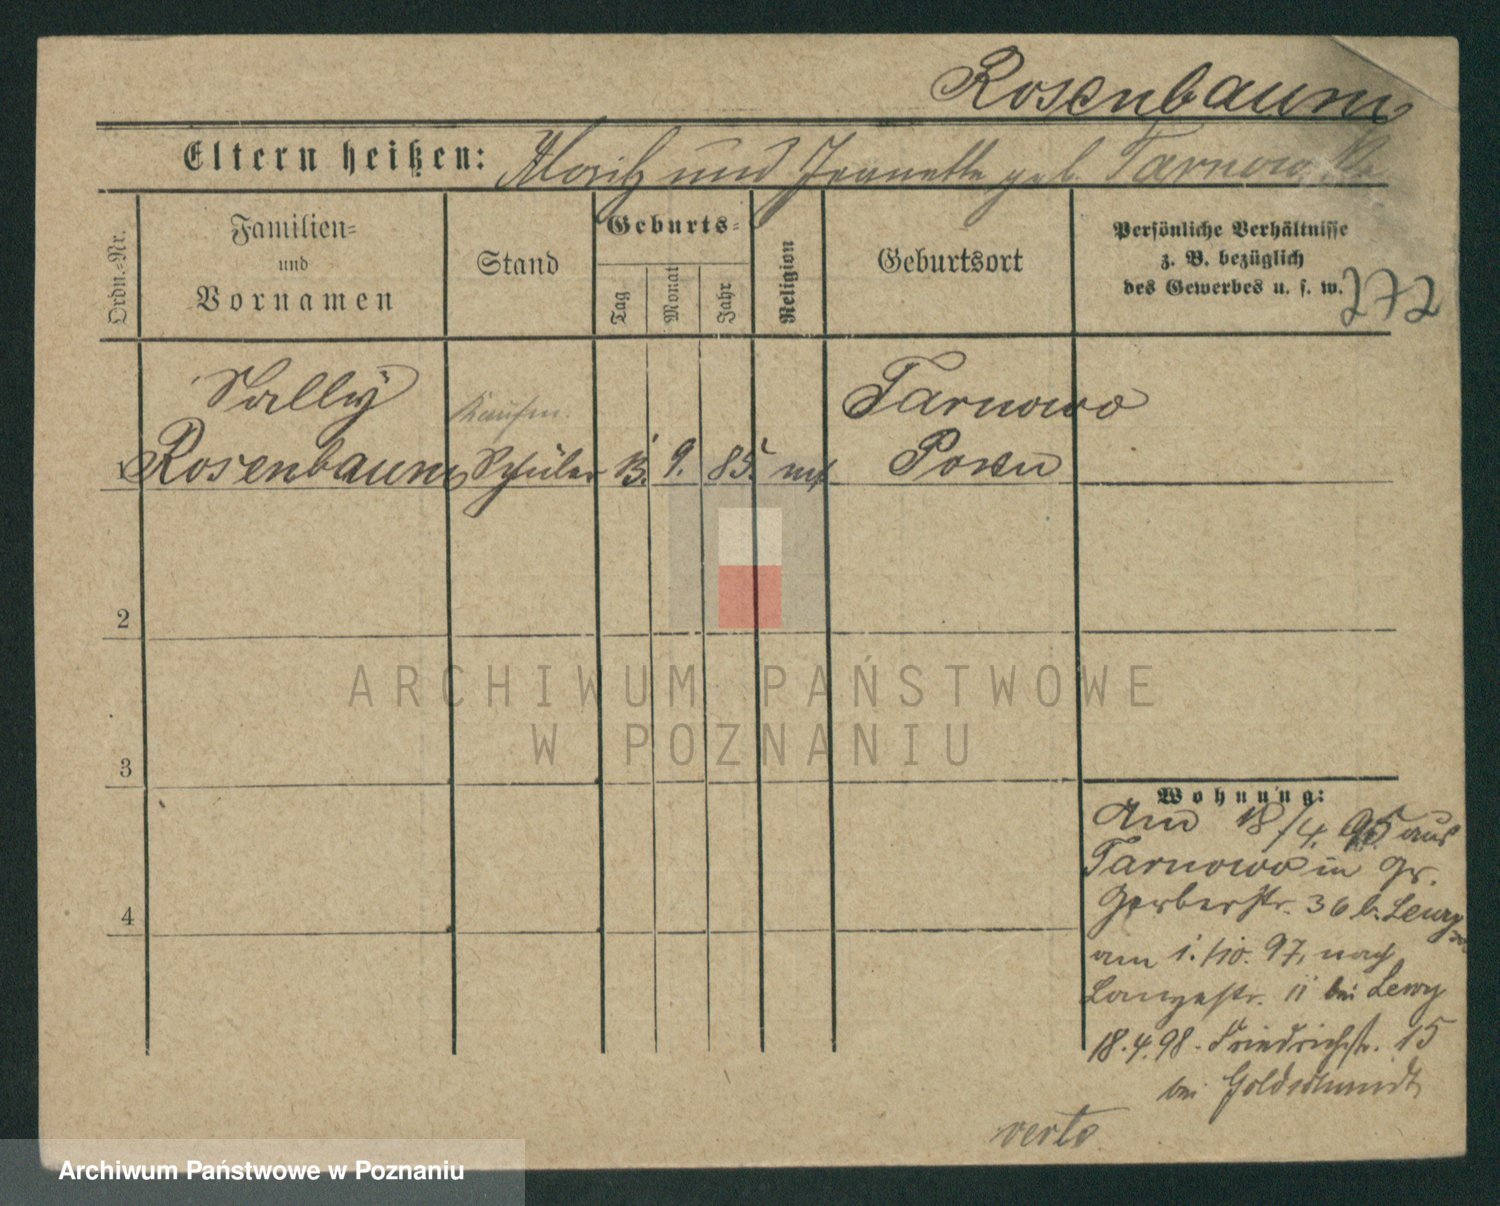 Rosenbaum
Eltern heißen: Moritz und Jeanette geb. Tarnowska
Ordn.-Nr.
Familien-
und
Vornamen
Stand
Geburts-
Tag
Monat
Jahr
Religion
Geburtsort
Persönliche Verhältnisse
z. B. bezüglich
des Gewerbes u. s. w.
272
Sally
Rosenbaum
Kaufm.
Schüler
13. 9. 85.
Tarnowo
Posen
2
3
4
Wohnung:
Am 18/4. 95 aus
Tarnowo in Gr.
Gerberstr. 36 b. Lewy
am 1./10. 97, nach
Langestr. 11 bei Lewy
18.4.98. Friedrichstr. 15
bei Goldschmidt
verto
ARCHIWUM PAŃSTWOWE
W POZNANIU
Archiwum Państwowe w Poznaniu